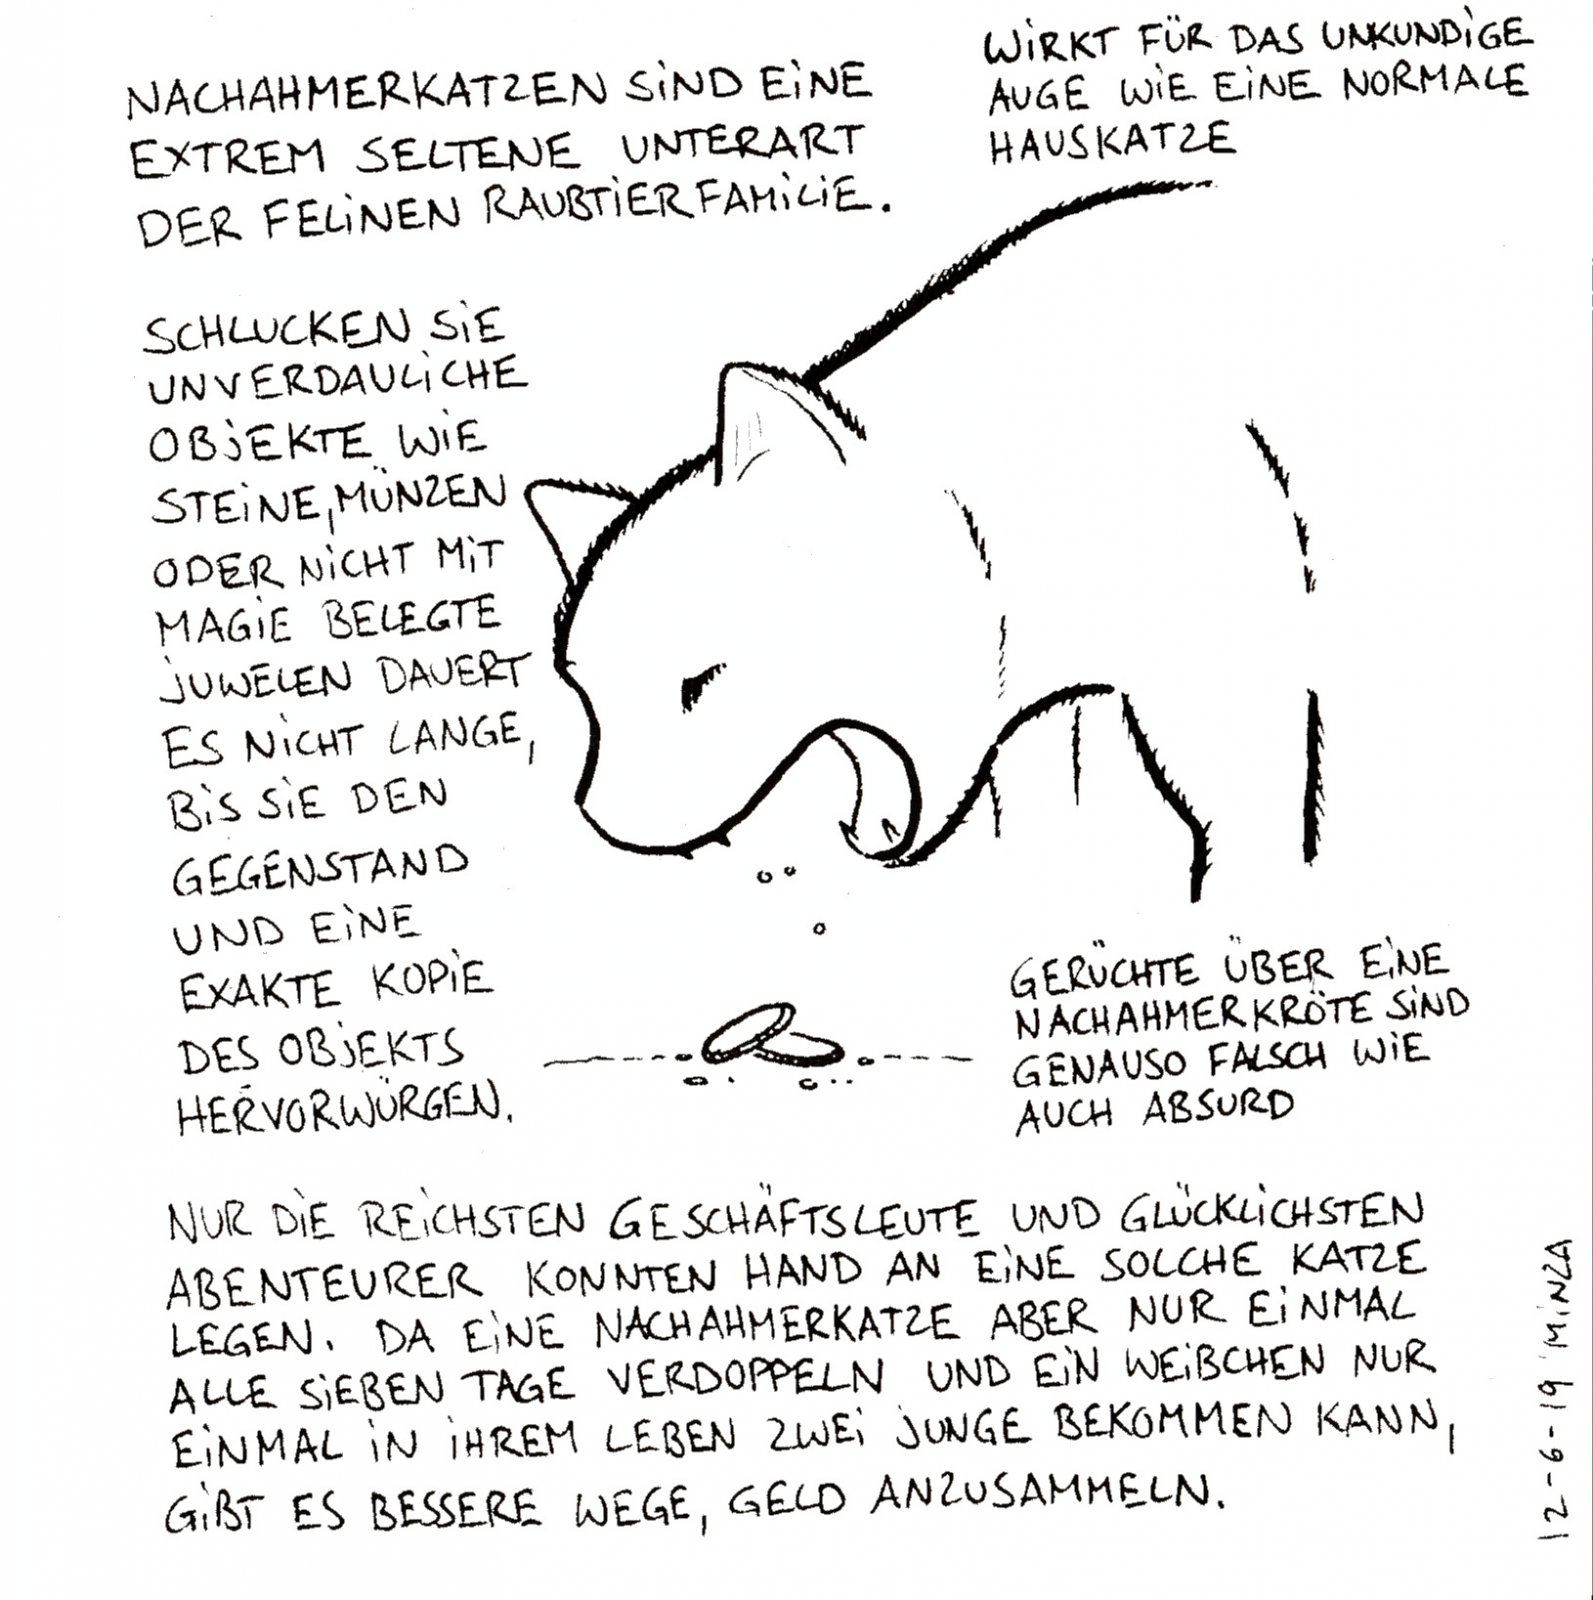 NACHAHMERKATZEN SIND EINE
EXTREM SELTENE UNTERART
DER FELINEN RAUBTIERFAMILIE.
WIRKT FÜR DAS UNKUNDIGE
AUGE WIE EINE NORMALE
HAUSKATZE
SCHLUCKEN SIE
UNVERDAULICHE
OBJEKTE WIE
STEINE, MÜNZEN
ODER NICHT MIT
MAGIE BELEGTE
JUWELEN DAUERT
ES NICHT LANGE,
BIS SIE DEN
GEGENSTAND
UND EINE
EXAKTE KOPIE
DES OBJEKTS
HERVORWÜRGEN.
GERÜCHTE ÜBER EINE
NACHAHMERKRÖTE SIND
GENAUSO FALSCH WIE
AUCH ABSURD
NUR DIE REICHSTEN GESCHÄFTSLEUTE UND GLÜCKLICHSTEN
ABENTEURER KONNTEN HAND AN EINE SOLCHE KATZE
LEGEN. DA EINE NACHAHMERKATZE ABER NUR EINMAL
ALLE SIEBEN TAGE VERDOPPELN UND EIN WEIBCHEN NUR
EINMAL IN IHREM LEBEN ZWEI JUNGE BEKOMMEN KANN,
GIBT ES BESSERE WEGE, GELD ANZUSAMMELN.
12-6-19 MINZA